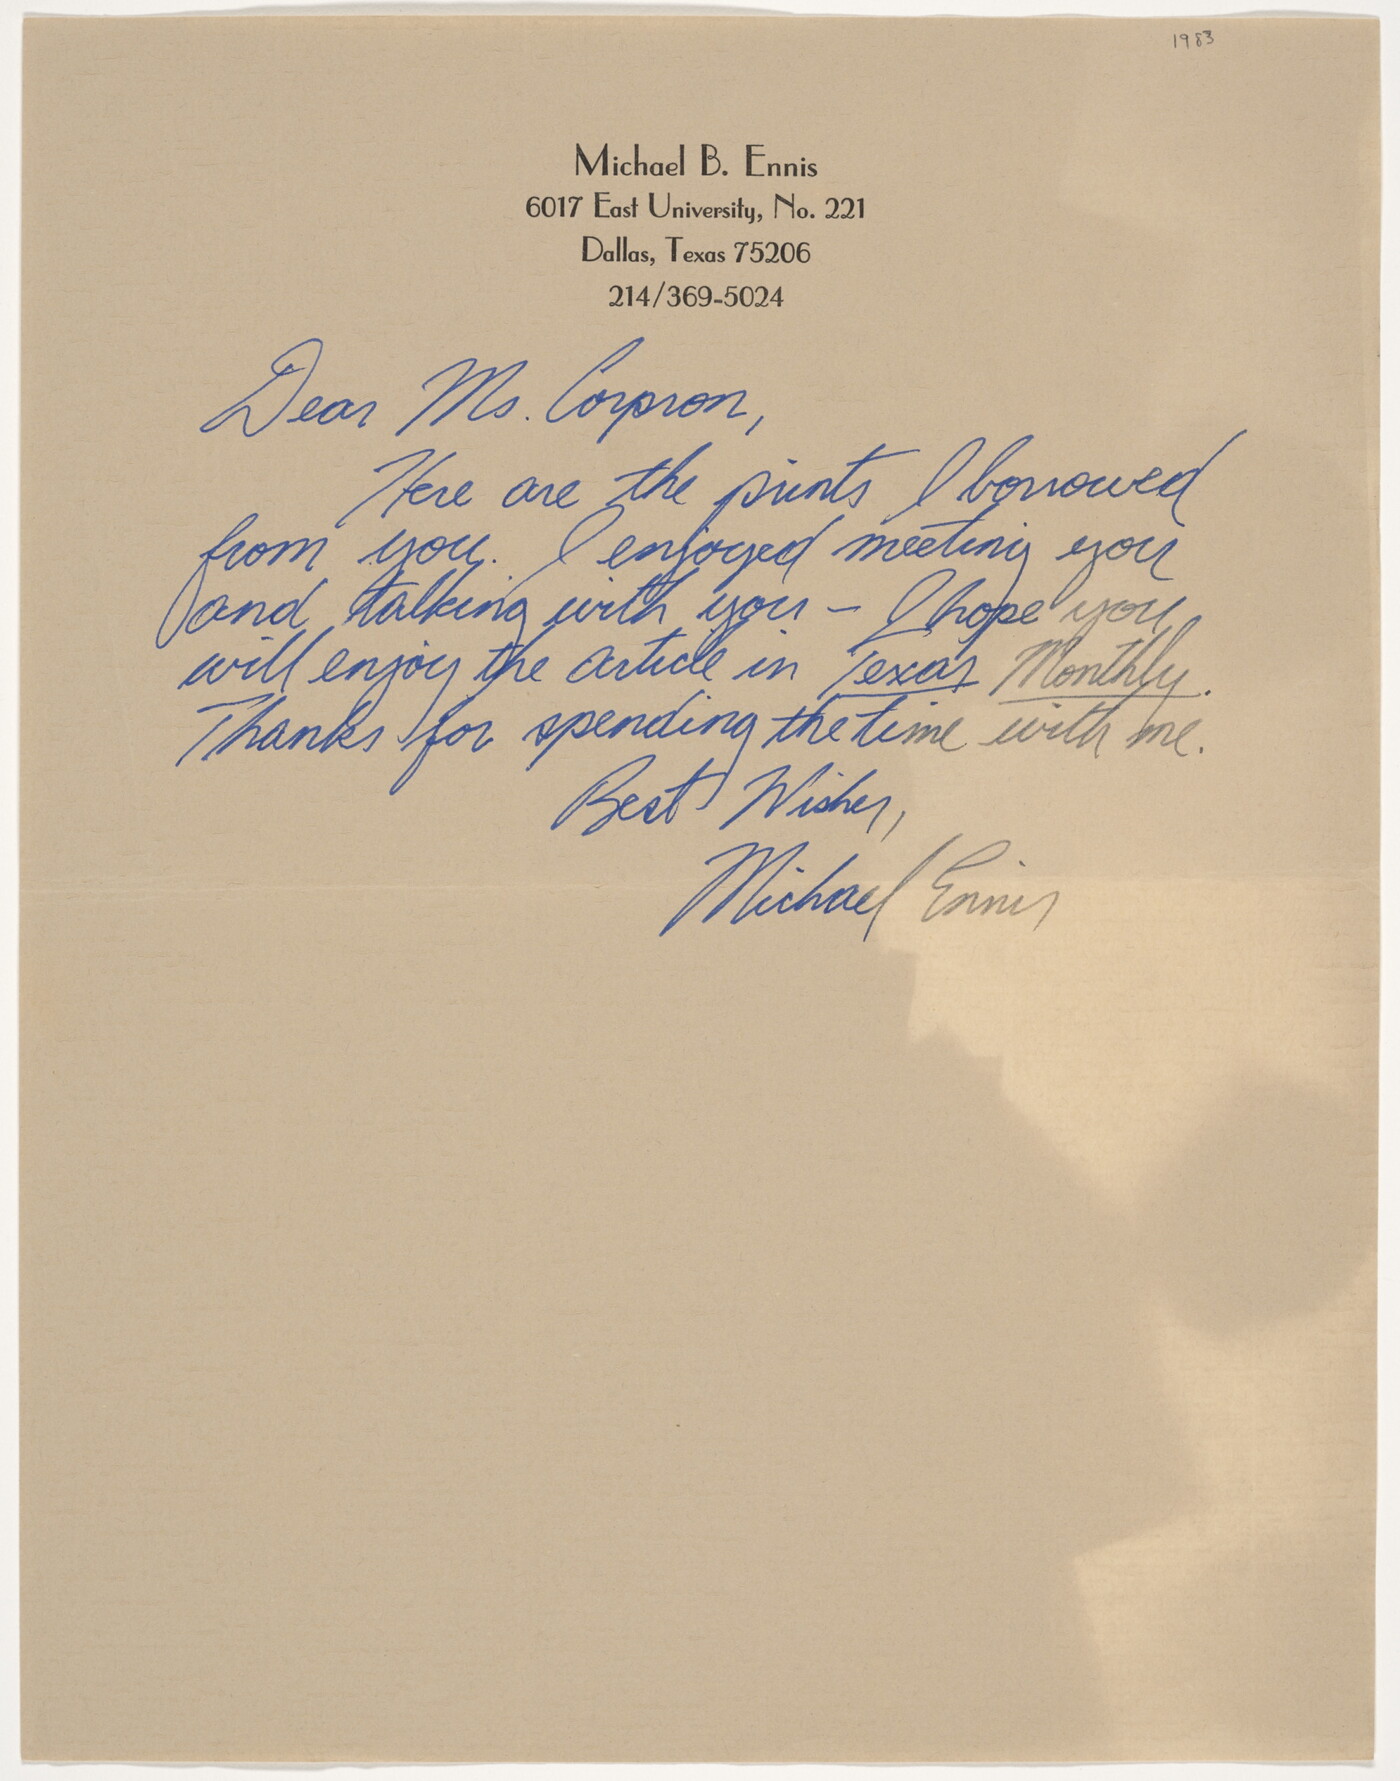 1983
Michael B. Ennis
6017 East University, No. 221
Dallas, Texas 75206
214/369-5024
Dear Ms. Corpron,
Here are the prints I borrowed
from you. I enjoyed meeting you
and talking with you – I hope you
will enjoy the article in Texas Monthly.
Thanks for spending the time with me.
Best Wishes,
Michael Ennis